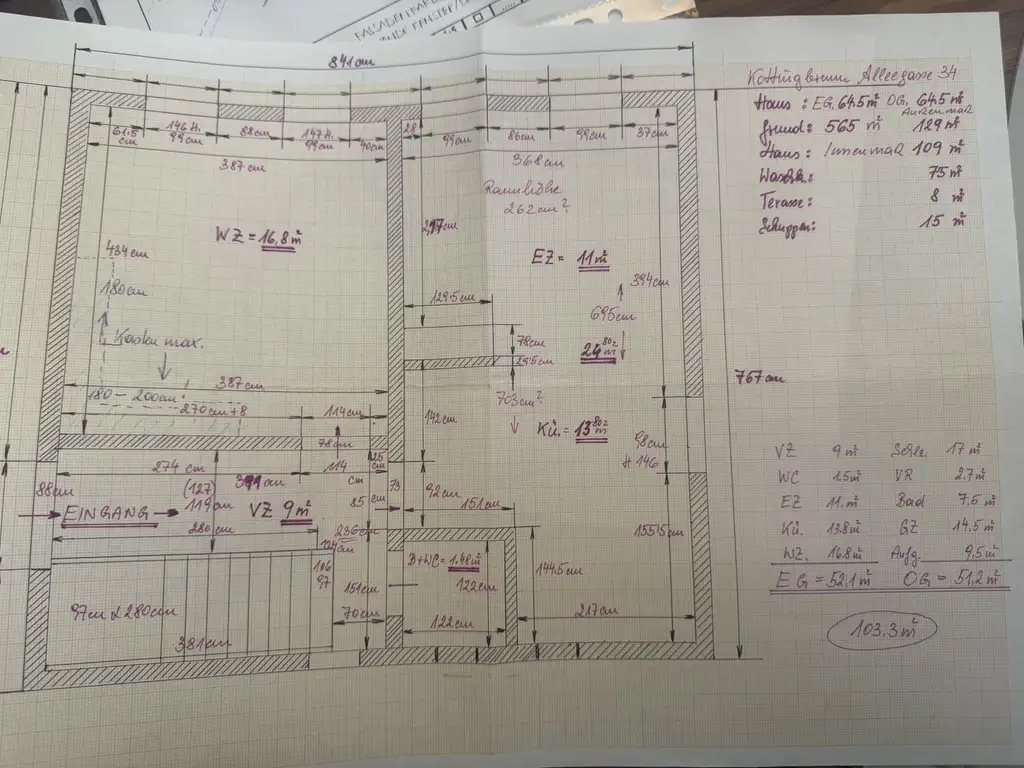 FASSADEN
841 cm
61.5 cm
146 H.
99 cm
88 cm
147 H.
99 cm
40 cm
28
99 cm
86 cm
99 cm
37 cm
387 cm
368 cm
Raumhöhe
262 cm²
WZ = 16,8 m²
297 cm
EZ = 11 m²
434 cm
180 cm
394 cm
129.5 cm
695 cm
Kasten max.
78 cm
29.5 cm
24 80z m²
387 cm
180 – 200 cm
270 cm + 8
114 cm
703 cm²
142 cm
Kü. = 13 80z m²
98 cm
# 146
78 cm
274 cm
114 cm
25 cm
391 cm
(127)
119 cm
88 cm
EINGANG
VZ 9 m²
85 cm
73
92 cm
151 cm
280 cm
236 cm
124 cm
106
97
B+WC = 1.48 m²
122 cm
144.5 cm
155.5 cm
151 cm
97 cm x 280 cm
70 cm
122 cm
217 cm
381 cm
767 cm
Kottingbrunn Alleegasse 34
Haus : EG. 64.5 m² OG. 64.5 m²
Außenmaß
Grund: 565 m² 129 m²
Haus: Innenmaß 109 m²
Waschk.: 75 m²
Terasse: 8 m²
Schuppen: 15 m²
VZ 9 m² Schlz. 17 m²
WC 1.5 m² VR 2.7 m²
EZ 11. m² Bad 7.5 m²
Kü. 13.8 m² GZ 14.5 m²
WZ. 16.8 m² Aufg. 9.5 m²
EG = 52.1 m² OG = 51,2 m²
103.3 m²